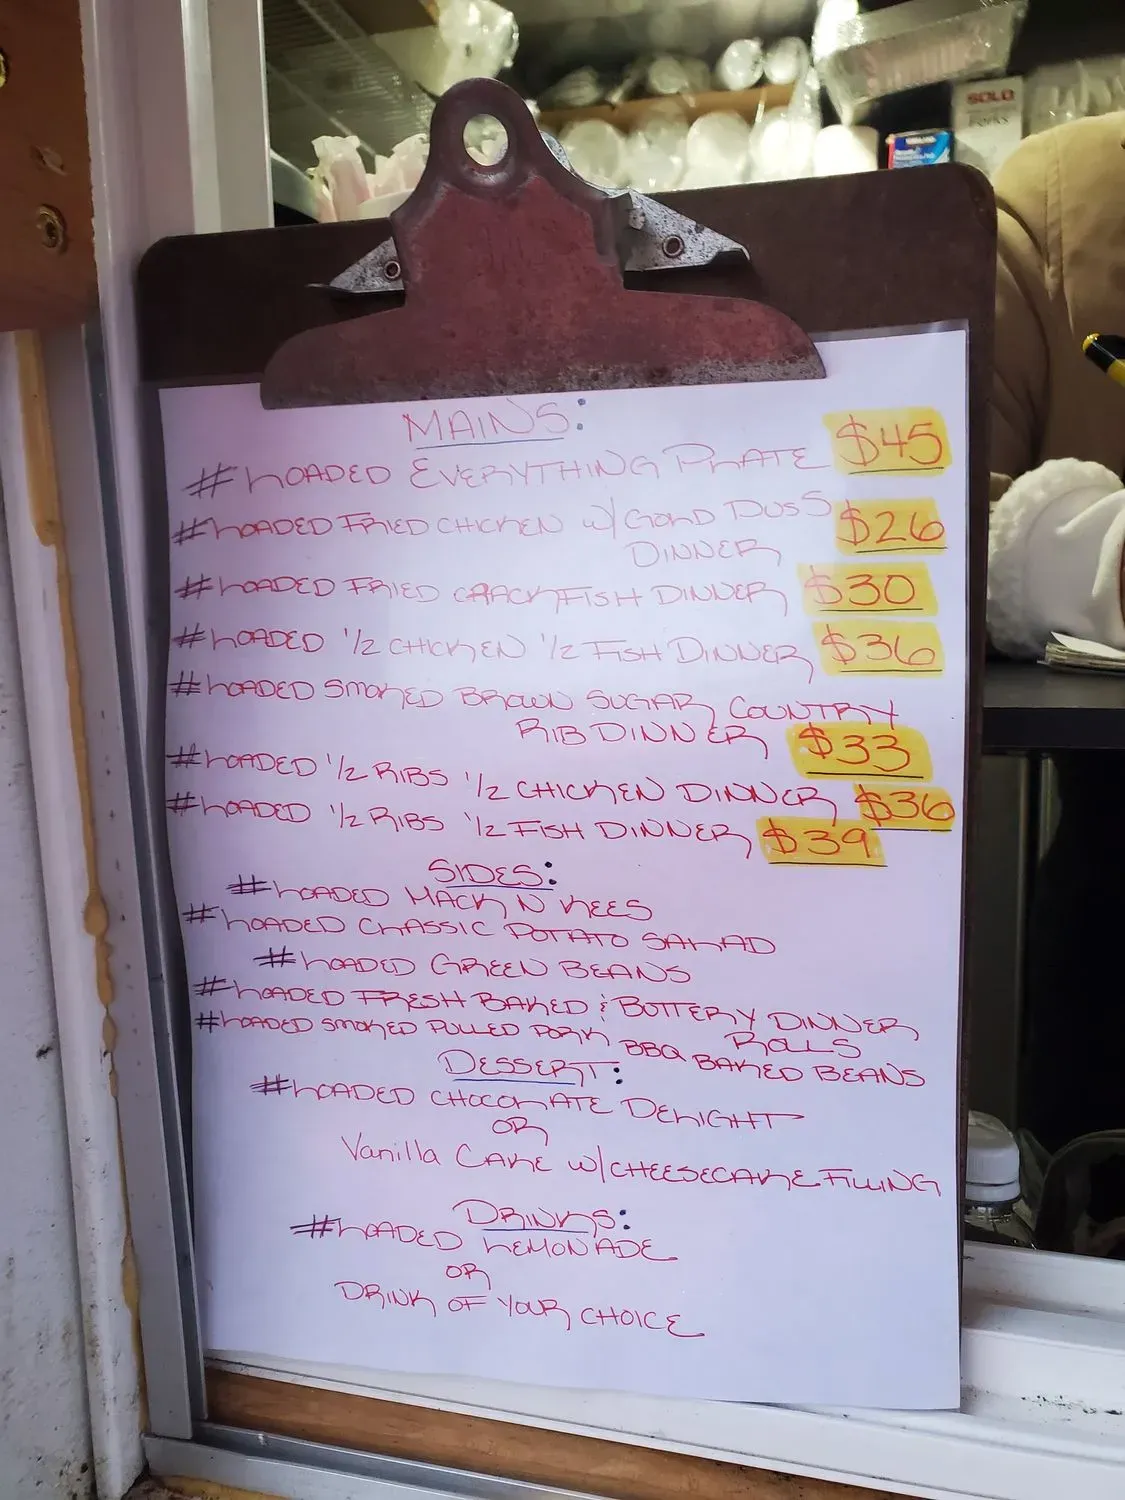 SOLO
FORKS
MAINS:
#LOADED EVERYTHING PLATE $45
#LOADED FRIED CHICKEN w/ GOLD DUSS $26
DINNER
#LOADED FRIED CRACKFISH DINNER $30
#LOADED 1/2 CHICKEN 1/2 FISH DINNER $36
#LOADED SMOKED BROWN SUGAR COUNTRY
RIB DINNER $33
#LOADED 1/2 RIBS 1/2 CHICKEN DINNER $36
#LOADED 1/2 RIBS 1/2 FISH DINNER $39
SIDES:
#LOADED MACK N KEES
#LOADED CLASSIC POTATO SALAD
#LOADED GREEN BEANS
#LOADED FRESH BAKED & BUTTERY DINNER
ROLLS
#LOADED SMOKED PULLED PORK BBQ BAKED BEANS
DESSERT:
#LOADED CHOCOLATE DELIGHT
OR
Vanilla CAKE w/CHEESECAKE FILLING
DRINKS:
#LOADED LEMONADE
OR
DRINK OF YOUR CHOICE